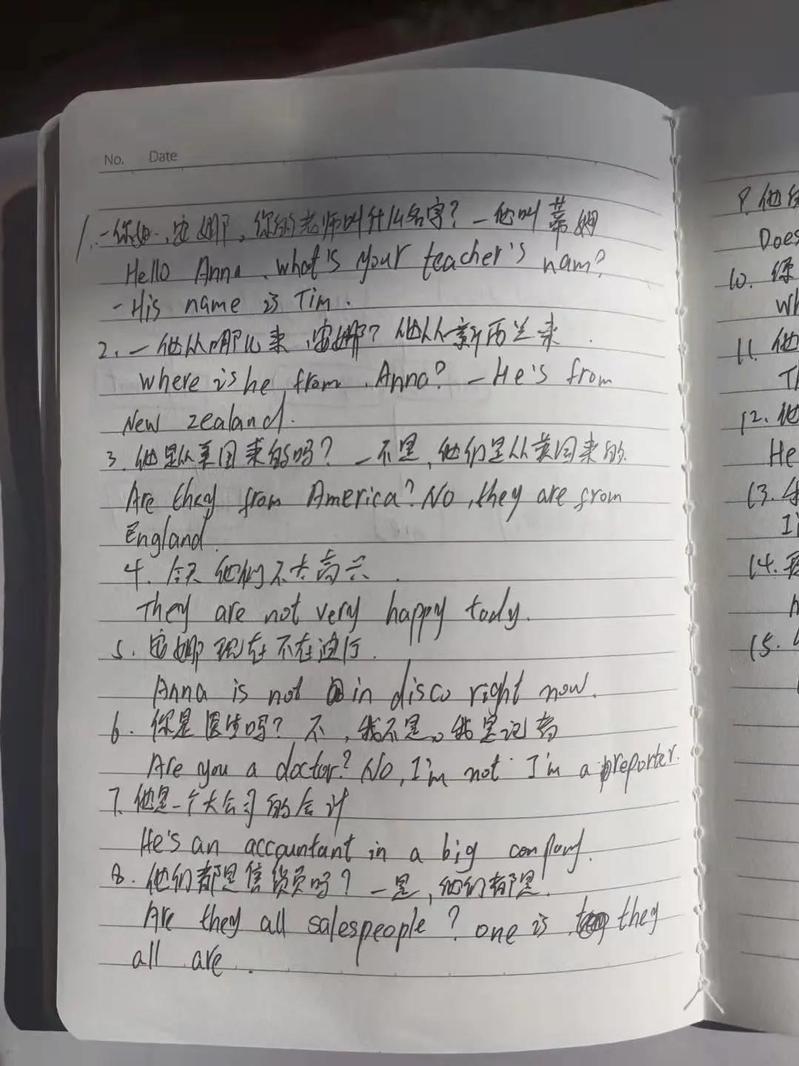 No. Date
1. -你好,安娜,你的老师叫什么名字? -他叫蒂姆
Hello Anna, what's your teacher's nam?
-His name is Tim.
2. -他从哪儿来,安娜? 他从新西兰来.
where is he from, Anna? -He's from
New zealand.
3. 他是从美国来的吗? -不是,他们是从英国来的
Are they from America? No, they are from
England.
4. 今天他们不太高兴.
They are not very happy tody.
5. 安娜现在不在迪厅.
Anna is not in disco right now.
6. 你是医生吗? 不,我不是。我是记者
Are you a doctor? No, I'm not. I'm a reporter.
7. 他是一个大公司的会计
He's an accountant in a big
8. 他们都是售货员吗? -是,他们都是.
Are they all salespeople? one is they
all are.
9. 他
Does
10. 你
Wh
11. 他
Th
12. 他
He
13. 我
I'
14. 我
15.